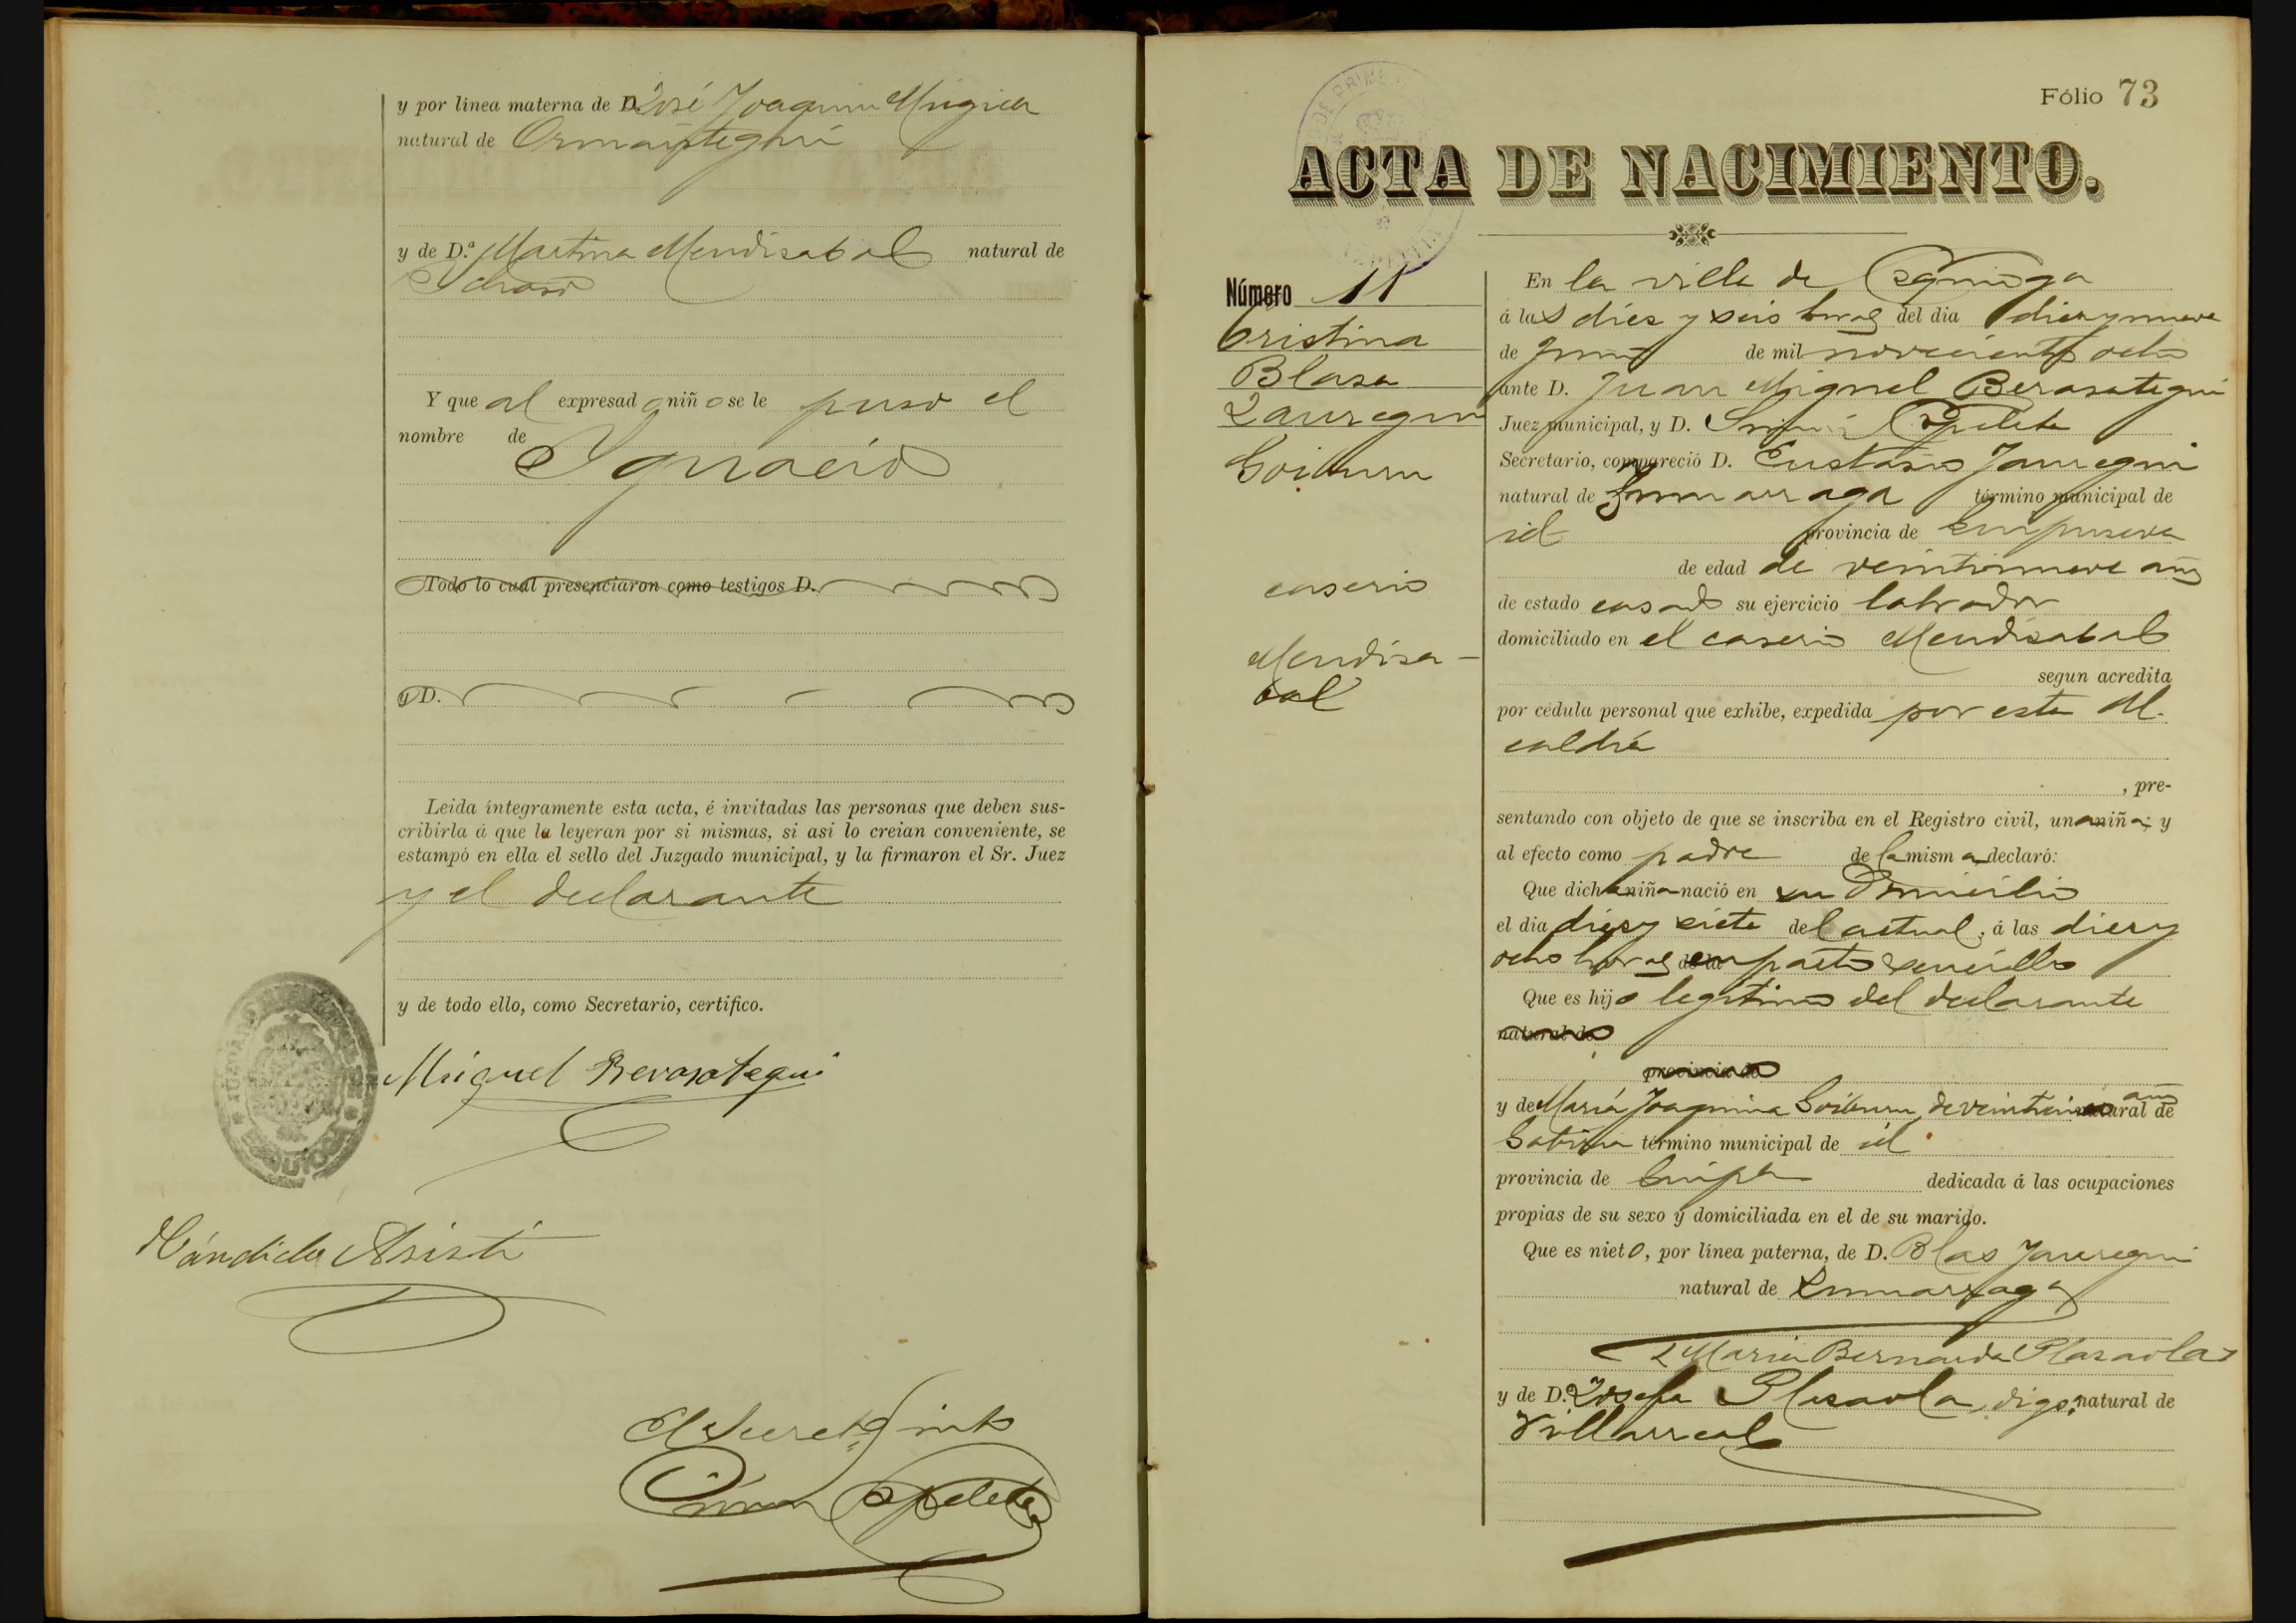 y por línea materna de D. José Joaquin Múgica
natural de Ormaiztegui
y de D.ª Martina Mendizabal natural de
Y que al expresado niño se le puso el
nombre de
Ignacio
Todo lo cual presenciaron como testigos D.
y D.
Leída íntegramente esta acta, é invitadas las personas que deben sus-
cribirla á que la leyeran por si mismas, si asi lo creian conveniente, se
estampó en ella el sello del Juzgado municipal, y la firmaron el Sr. Juez
y el declarante
y de todo ello, como Secretario, certifico.
Miguel Berasategui
Cándido
El Secret.º
Fólio 73
ACTA DE NACIMIENTO.
Número 11
Cristina
Blasa
Jauregui
Goiburu
caserio
Mendiza-
bal
En la villa de Ezquioga
á las diez y seis horas del dia diez y nueve
de Junio de mil novecientos ocho
ante D. Juan Miguel Berasategui
Juez municipal, y D.
Secretario, compareció D. Eustasio Jauregui
natural de Zumarraga término municipal de
id provincia de Guipuzcoa
de edad de veintinueve años
de estado casado su ejercicio labrador
domiciliado en el caserio Mendizabal
segun acredita
por cédula personal que exhibe, expedida por esta Al-
caldía
, pre-
sentando con objeto de que se inscriba en el Registro civil, una niña; y
al efecto como padre de la misma, declaró:
Que dicha niña nació en su domicilio
el dia diez y siete del actual, á las diez y
ocho horas de la en parto sencillo
Que es hijo legitimo del declarante
natural de
provincia de
y de María Joaquina Goiburu, de años natural de
Gabiria término municipal de id
provincia de Guipa dedicada á las ocupaciones
propias de su sexo y domiciliada en el de su marido.
Que es nieto, por línea paterna, de D. Blas Jauregui
natural de Zumarraga
Maria Bernarda Plazaola
y de D.ª Josefa Plazaola, digo, natural de
Villarreal